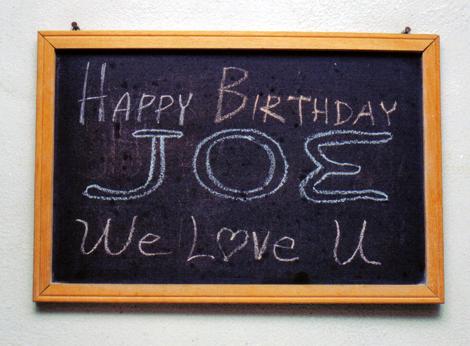 Happy Birthday
JOE
We Love U